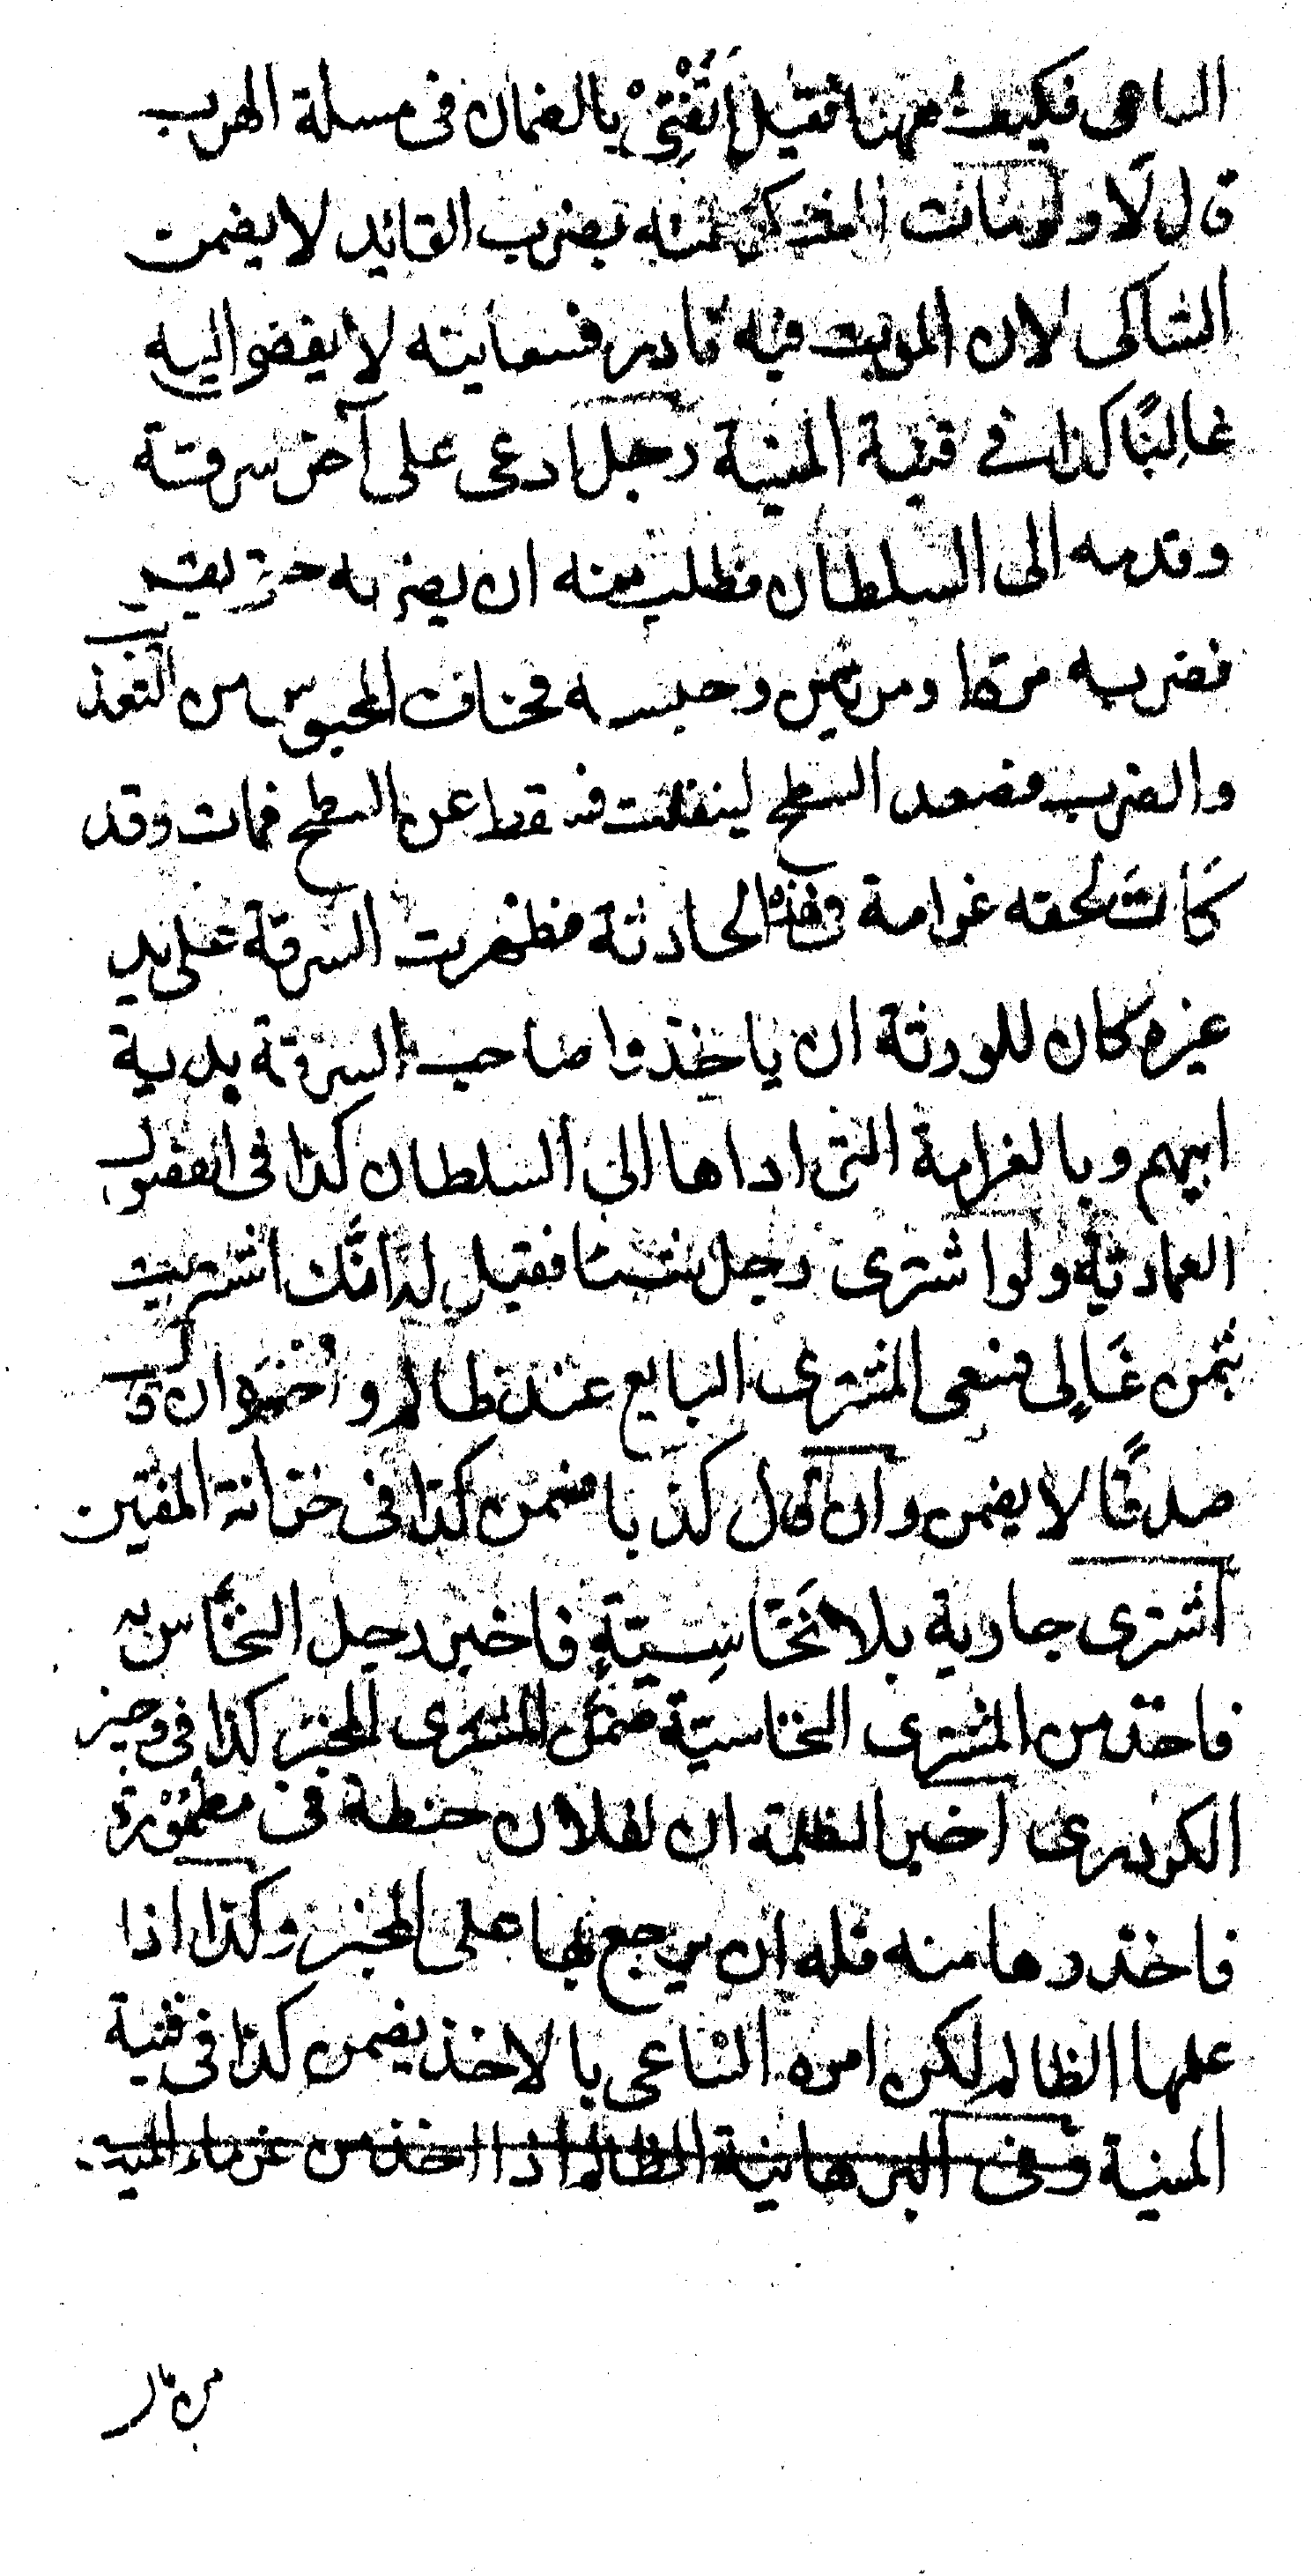 الساعى فكيف ههنا فقيل أتُفْتِىْ بالضمان فى مسلة الهرب
قال لَا ولومات المشكو منه بضرب القائد لا يضمن
الشاكى لان الموت فيه نادر فسعايته لا يفضو اليه
غالبًا كذا فى قنية المنية رجل ادعى على آخر سرقة
وقدمه الى السلطان فطلب منه ان يضربه حتى يقر
فضربه مرة اومرتين وحبسه فخاف المحبوس من التعذيب
والضرب فصعد السطح لينفلت فسقط عن السطح فمات وقد
كَانَت لحقه غرامة فى هذه الحادثة فظهرت السرقة على يد
غيره كان للورثة ان ياخذوا صاحب السرقة بدية
ابيهم وبالغرامة التى اداها الى السلطان كذا فى الفصول
العمادية ولو اشترى رجل شيئا فقيل له انَّك اشتريت
بثمن غَالٍى فسعى المشترى البايع عند ظالم واخسره ان قال
صدقًا لا يضمن وان قال كذبا ضمن كذا فى خزانة المفتين
اشترى جارية بلا نَخَّاسِيّةٍ فاخبر رجل النخَّاس به
فاخذ من المشترى النخاسيّة ضمَّن المشترى المخبر كذا فى وجيز
الكردرى اخبر الظلمة ان لفلان حنطة فى مطمُوْرة
فاخذوها منه فله ان يرجع بها على المخبر وكذا اذا
علمها الظالم لكن امره الساعى بالاخذ يضمن كذا فى قنية
المنية وفى البرهانية الظالم اذا اخذ من غرماء الميت